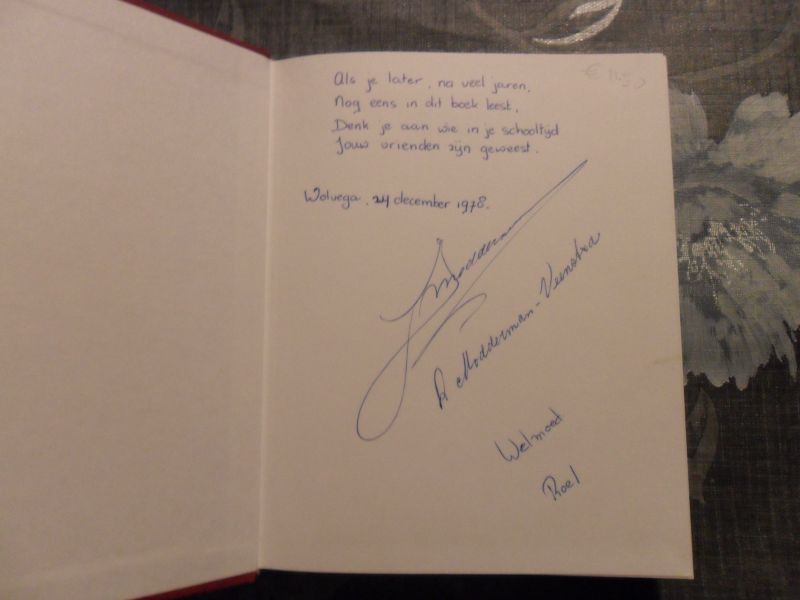 Als je later, na veel jaren,
Nog eens in dit boek leest,
Denk je aan wie in je schooltijd
Jouw vrienden zijn geweest.
Wolvega, 24 december 1978.
Modderman
A Modderman - Veenstra
Welmoed
Roel